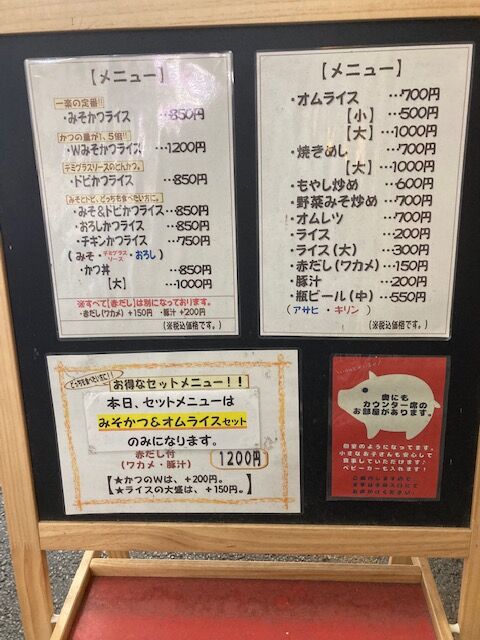 【メニュー】
一楽の定番!!
・みそかつライス …850円
かつの量が1、5倍!!
・Wみそかつライス …1200円
デミグラスソースのとんかつ。
・ドビかつライス …850円
みそとドビ、どっちも食べたい方に。
・みそ&ドビかつライス…850円
・おろしかつライス …850円
・チキンかつライス …750円
(みそ・デミグラスソース・おろし)
・かつ丼 …850円
【大】 …1000円
※すべて【赤だし】は別になっております。
・赤だし(ワカメ)+150円 ・豚汁 +200円
(※税込価格です。)
【メニュー】
・オムライス …700円
【小】 …500円
【大】 …1000円
・焼きめし …700円
【大】 …1000円
・もやし炒め …600円
・野菜みそ炒め …700円
・オムレツ …700円
・ライス …200円
・ライス(大) …300円
・赤だし(ワカメ)…150円
・豚汁 …200円
・瓶ビール(中)…550円
(アサヒ・キリン)
(※税込価格です。)
どっちも食べたい方に!!
お得なセットメニュー!!
本日、セットメニューは
みそかつ&オムライスセット
のみになります。
赤だし付
(ワカメ・豚汁) 1200円
【★かつのWは、+200円。】
【★ライスの大盛は、+150円。】
奥にも
カウンター席の
お部屋があります。
個室のようになってます。
小さなお子さんも安心して
食事していただけます♪
ベビーカーも入れます!